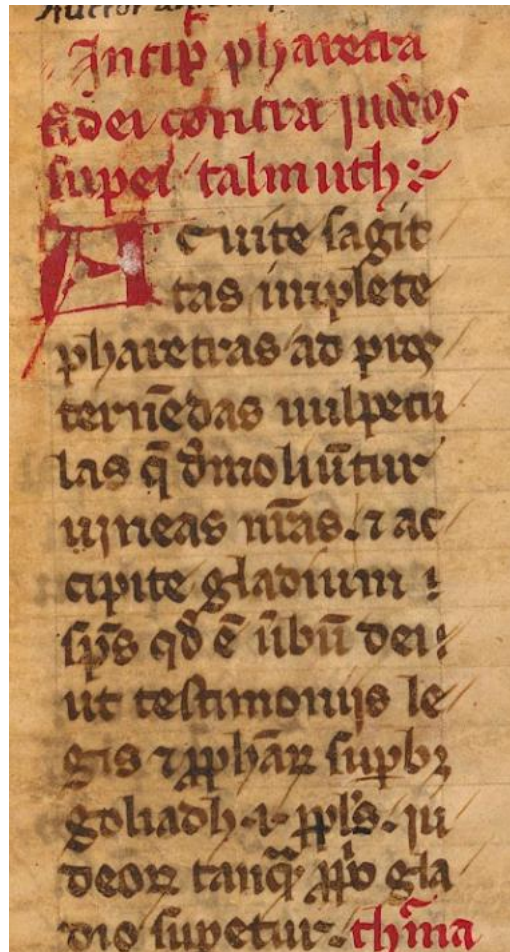 Incip̄ pharetra
fidei contra iudeos
super talmuth:
Acuite sagit
tas implete
pharetras ad pros
ternēdas uulpecu
las q̄ d̄moliūtur
uineas nr̄as. ⁊ ac
cipite gladium
sp̄s qd̄ ē ūbū dei:
ut testimonijs le
gis ⁊ ꝓphāꝝ suꝑbꝫ
goliadh .i. ppl̄s. iu
deoꝝ tanq̄ ꝓpo gla
dio suꝑetur. thēma